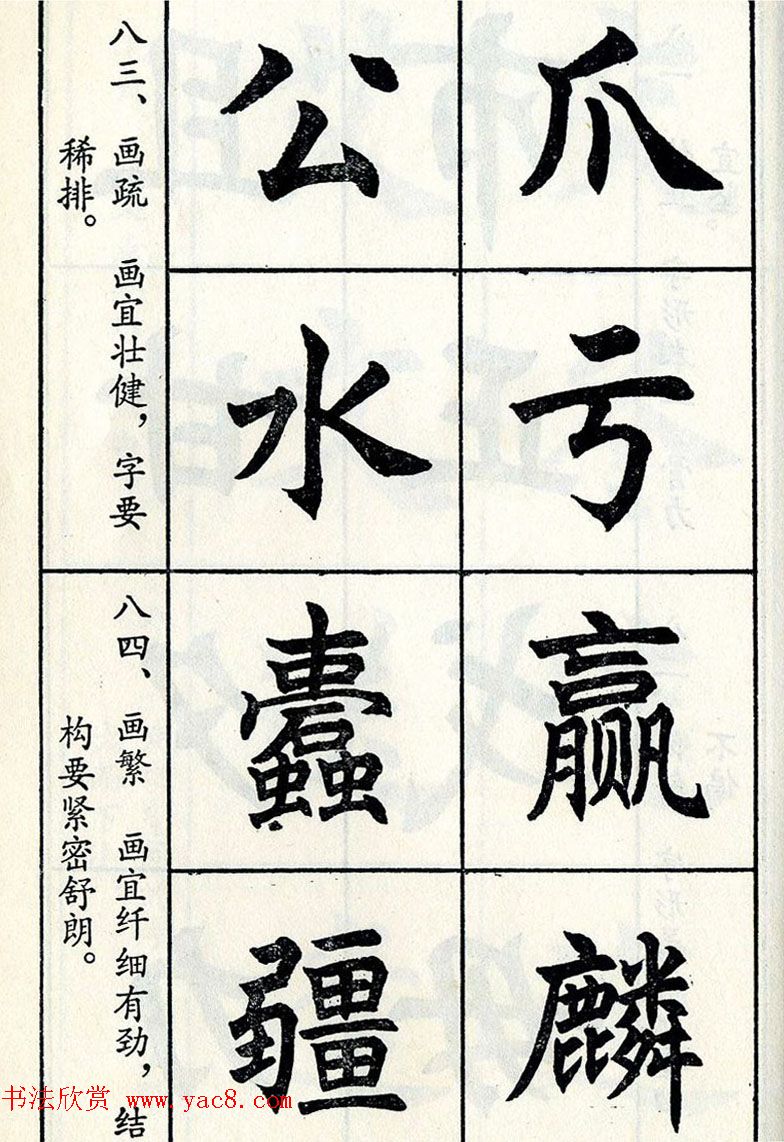 八三、画疏 画宜壮健，字要
稀排。
公 爪
水 亏
八四、画繁 画宜纤细有劲，结
构要紧密舒朗。
蠹 赢
疆 麟
书法欣赏 www.yac8.com